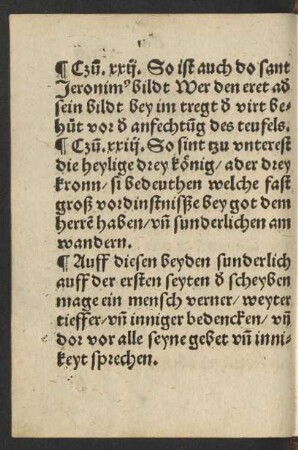 ¶ Czū. xxij. So ist auch do sant
Jeronimꝰ bildt Wer den eret ad̕
sein bildt bey im tregt d̕ virt be-
hüt vor d̕ anfechtūg des teufels.
¶ Czū. xxiij. So sint tzu vnterest
die heylige drey könig/ ader drey
kronn/ si bedeuthen welche fast
groß vordinstnisße bey got dem
herrē haben/ vñ sunderlichen am
wandern.
¶ Auff diesen beyden sunderlich
auff der ersten seyten d̕ scheyben
mage ein mensch verner/ weyter
tieffer/ vñ inniger bedencken/ vñ
dor vor alle seyne gebet vñ inni-
keyt sprechen.